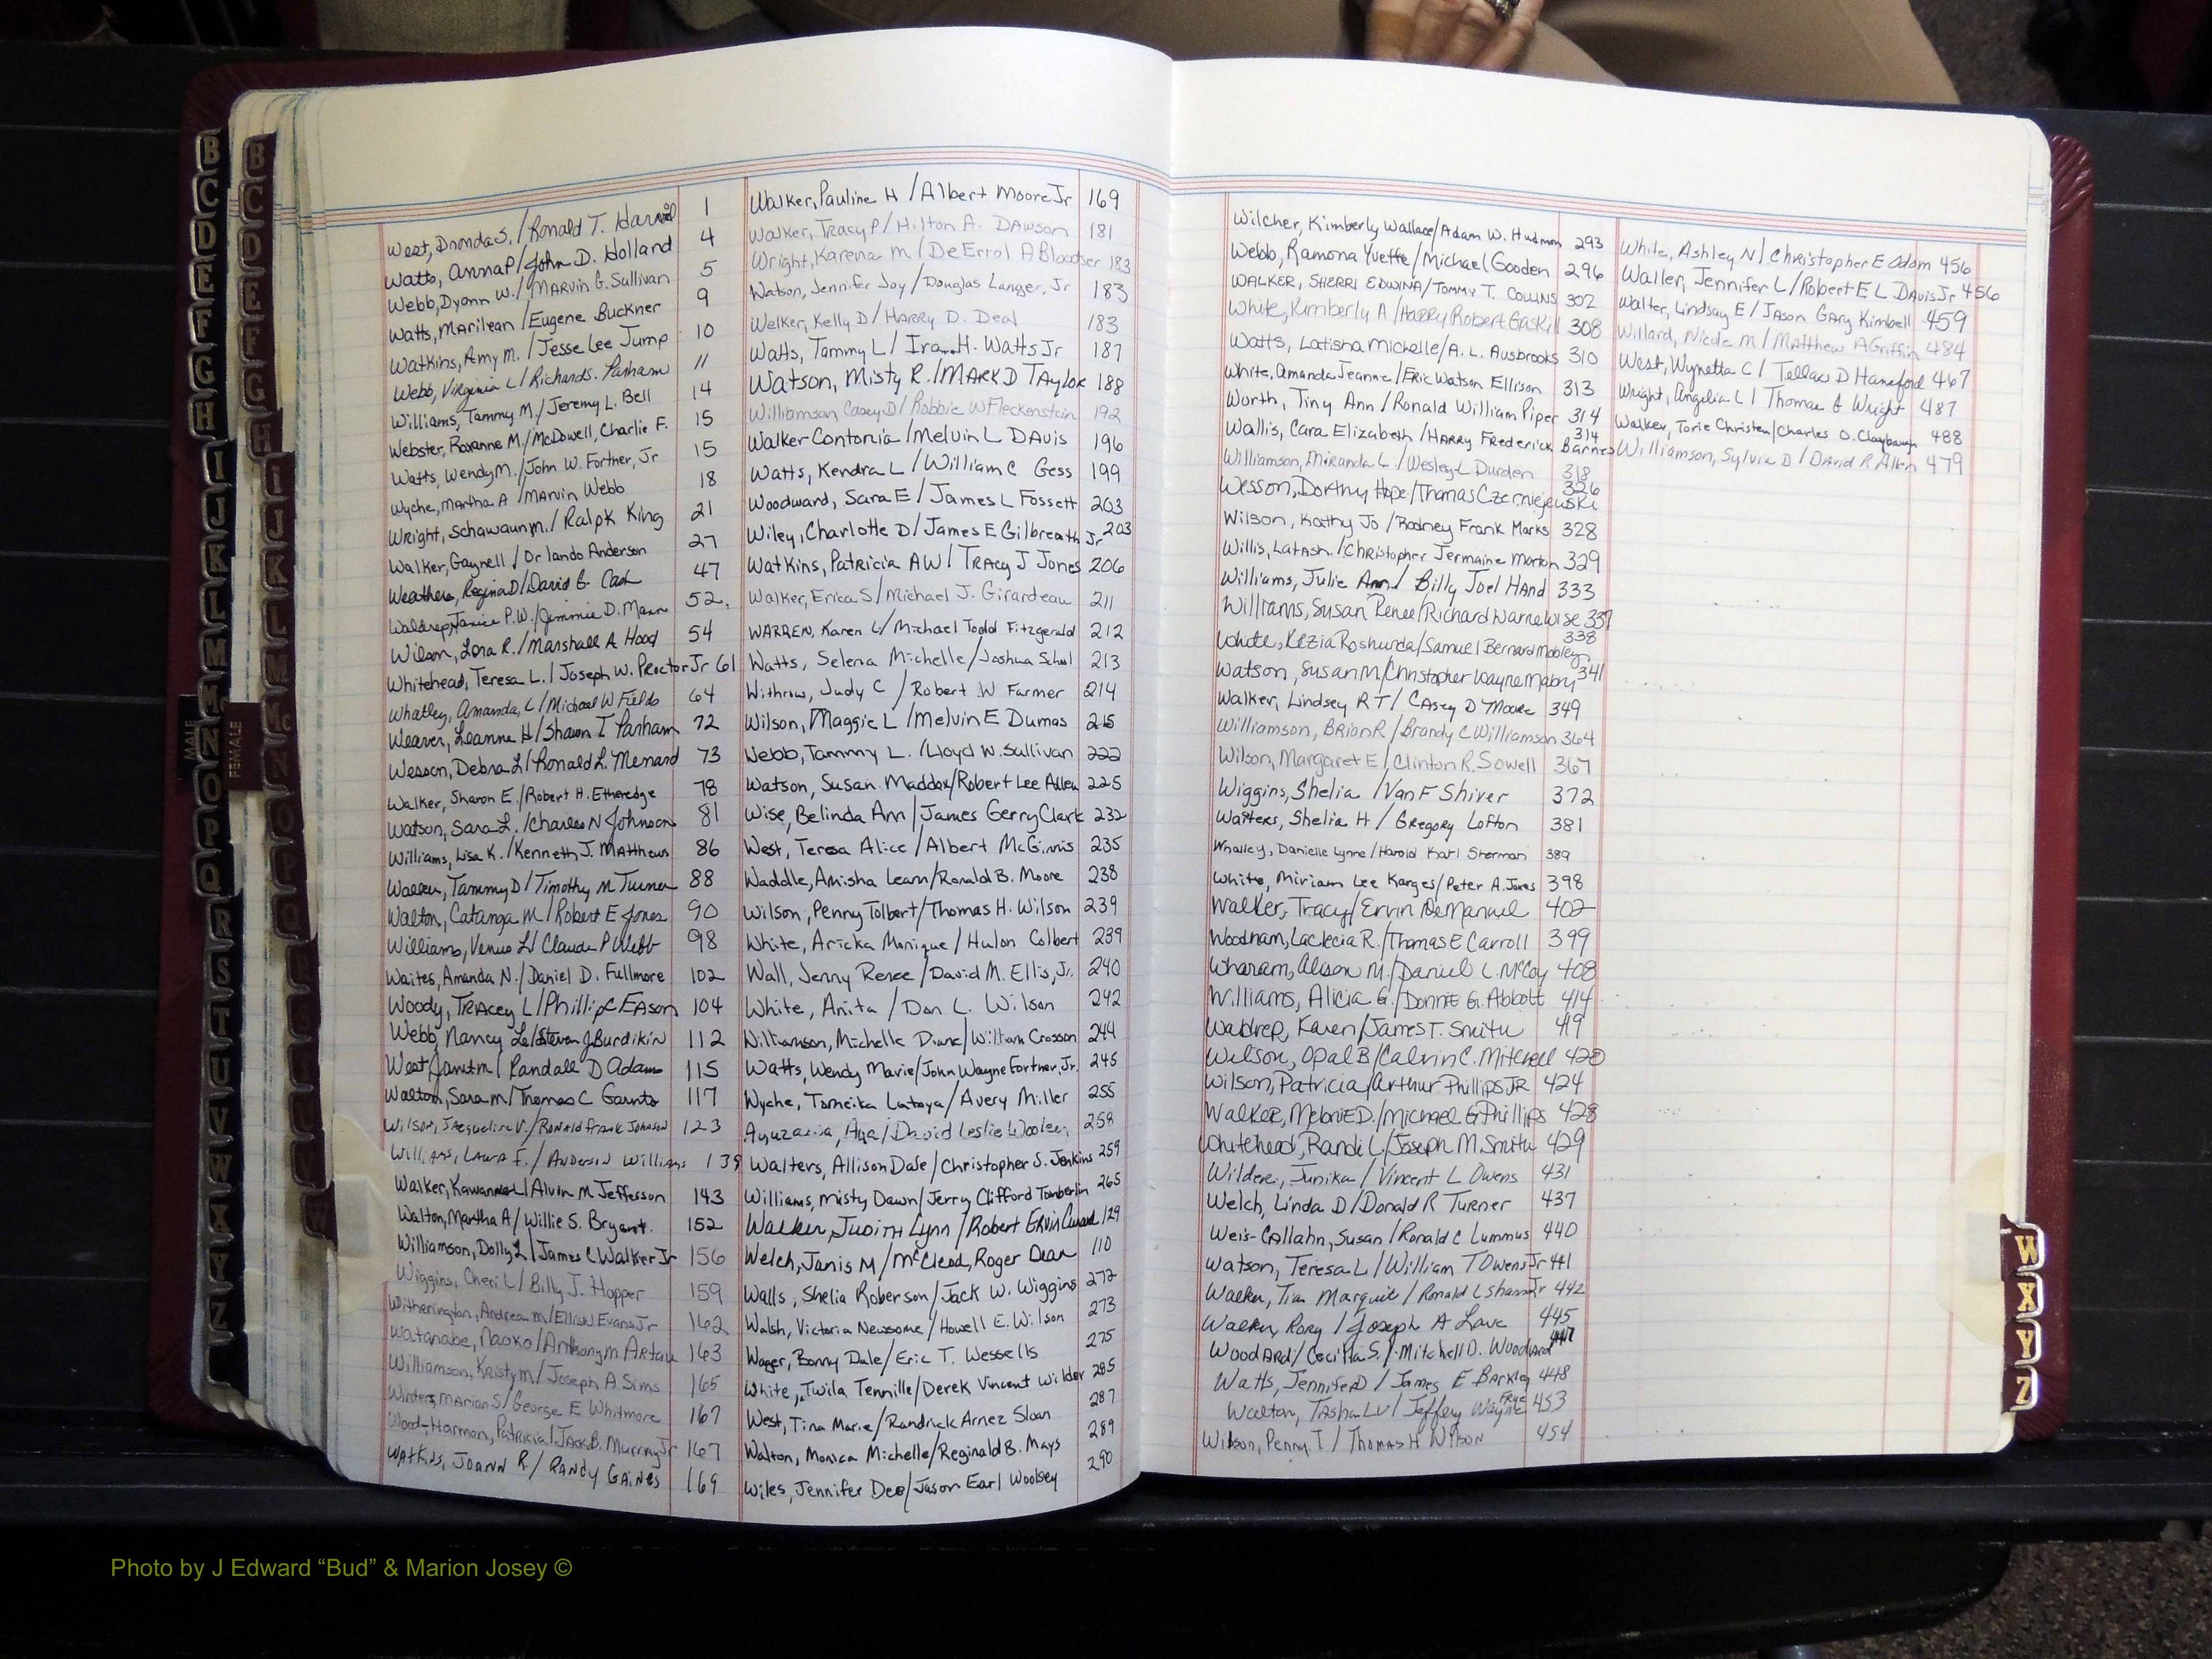 West, Dronda S. / Ronald T. 1
Watts, Anna P / John D. Holland 4
Webb, Dyann W. / Marvin G. Sullivan 5
Watts, Marilean / Eugene Buckner 9
Watkins, Amy M. / Jesse Lee Jump 10
Webb, Virginia L / Richard S. Parham 11
Williams, Tammy M. / Jeremy L. Bell 14
Webster, Roxanne M. / McDowell, Charlie F. 15
Watts, Wendy M. / John W. Fortner, Jr 15
Wyche, Martha A / Marvin Webb 18
Wright, Schawaun M. / Ralph King 21
Walker, Gaynell / Orlando Anderson 27
Weathers, Regina D / David G Cash 47
Waldrep, Janice P.W. / Jimmie D. Mann 52
Wilson, Lora R. / Marshall A Hood 54
Whitehead, Teresa L. / Joseph W. Proctor Jr 61
Whatley, Amanda L / Michael W Fields 64
Weaver, Leanne H / Shawn T Parham 72
Wesson, Debra L / Ronald L. Menard 73
Walker, Sharon E. / Robert H. Etheredge 78
Watson, Sara L. / Charles N Johnson 81
Williams, Lisa K. / Kenneth J. Matthews 86
Tammy D / Timothy M Turner 88
Walton, Catanga M / Robert E Jones 90
Williams, Venus L / Claude P Webb 98
Waites, Amanda N. / Daniel D. Fullmore 102
Woody, Tracey L / Phillip C Eason 104
Webb, Nancy / Steven J Burdikin 112
West, Janet M / Randall D Adams 115
Walton, Sara M / Thomas C Garnto 117
Wilson, Jacqueline V. / Ronald Frank Johnson 123
Williams, Laura F. / Anderson Williams 139
Walker, Kawanna L / Alvin M Jefferson 143
Walton, Martha A / Willie S. Bryant 152
Williamson, Dolly L / James C Walker Jr 156
Wiggins, Cheri L / Billy J. Hopper 159
Witherington, Andrea M / Ellis W Evans Jr 162
Watanabe, Naoko / Anthony M 163
Williamson, Kristy M / Joseph A Sims 165
Winters, Marion S / George E Whitmore 167
Wood-Harmon, Patricia / Jack B. Murray Jr 167
Watkins, Joann R / Randy Gaines 169
Walker, Pauline H / Albert Moore Jr 169
Walker, Tracy P / Hilton A. Dawson 181
Wright, Karena M / DeErrol A 183
Watson, Jennifer Joy / Douglas Langer, Jr 183
Walker, Kelly D / Harry D. Deal 183
Watts, Tammy L / Ira H. Watts Jr 187
Watson, Misty R. / Mark D Taylor 188
Williamson, Casey D / Robbie W Fleckenstein 192
Walker Contonia / Melvin L Davis 196
Watts, Kendra L / William C Gess 199
Woodward, Sara E / James L Fossett 203
Wiley, Charlotte D / James E Gilbreath Jr 203
Watkins, Patricia AW / Tracy J Jones 206
Walker, Erica S / Michael J. Girardeau 211
WARREN, Karen L / Michael Todd Fitzgerald 212
Watts, Selena Michelle / Joshua 213
Withrow, Judy C / Robert W Farmer 214
Wilson, Maggie L / Melvin E Dumas 215
Webb, Tammy L. / Lloyd W. Sullivan 222
Watson, Susan Maddox / Robert Lee Allen 225
Wise, Belinda Ann / James Gerry Clark 232
West, Teresa Alice / Albert McGinnis 235
Waddle, Amisha Leann / Ronald B. Moore 238
Wilson, Penny Tolbert / Thomas H. Wilson 239
White, Aricka Monique / Hulon Colbert 239
Wall, Jenny Renee / David M. Ellis, Jr. 240
White, Anita / Don L. Wilson 242
Williamson, Michelle Diane / William Crosson 244
Watts, Wendy Marie / John Wayne Fortner, Jr. 245
Wyche, Tomeika Latoya / Avery Miller 255
David Leslie 258
Walters, Allison Dale / Christopher S. Jenkins 259
Williams, Misty Dawn / Jerry Clifford Tomberlin 265
Walker Judith Lynn / Robert Ervin 129
Welch, Janis M / McCleod, Roger Dean 110
Walls, Shelia Roberson / Jack W. Wiggins 272
Walsh, Victoria Newsome / Howell E. Wilson 273
Wager, Bonny Dale / Eric T. Wessells 275
White, Twila Tennille / Derek Vincent Wilder 285
West, Tina Marie / Randrick Arnez Sloan 287
Walton, Monica Michelle / Reginald B. Mays 289
Wiles, Jennifer Dee / Jason Earl Woolsey 290
Wilcher, Kimberly Wallace / Adam W. Hudmon 293
Webb, Ramona Yvette / Michael Gooden 296
WALKER, SHERRI EDWINA / TOMMY T. COLLINS 302
White, Kimberly A / Harry Robert Gaskill 308
Watts, Latisha Michelle / A. L. Ausbrooks 310
White, Amanda Jeanne / Eric Watson Ellison 313
Worth, Tiny Ann / Ronald William Piper 314
Wallis, Cara Elizabeth / Harry Frederick Barnes 314
Williamson, Miranda L. / Wesley L Durden 318
Wesson, Dorthy Hope / Thomas Czerniejewski 326
Wilson, Kathy Jo / Rodney Frank Marks 328
Willis, Latash. / Christopher Jermaine Morton 329
Williams, Julie Ann / Billy Joel Hand 333
Williams, Susan Renee / Richard Warne Wise 337
White, Kezia Roshunda / Samuel Bernard Mobley 338
Watson, Susan M / Christopher Wayne Mabry 341
Walker, Lindsey R T / Casey D Moore 349
Williamson, Brian R / Brandy C Williamson 364
Wilson, Margaret E / Clinton R. Sowell 367
Wiggins, Shelia / Van F Shiver 372
Walters, Shelia H / Gregory Lofton 381
Whalley, Danielle Lynne / Harold Karl Sherman 389
White, Miriam Lee Karges / Peter A. Jones 398
Walker, Tracy / Ervin DeManuel 402
Woodham, LaClecia R. / Thomas E Carroll 399
Wharam, Alison M. / Daniel L. McCoy 408
Williams, Alicia G. / Donnie G. Abbott 414
Waldrep, Karen / James T. Smith 419
Wilson, Opal B / Calvin C. Mitchell 420
Wilson, Patricia / Arthur Phillips JR 424
Walker, Melanie D. / Michael G Phillips 428
Whitehead, Randi L / Joseph M. Smith 429
Wilder, Junika / Vincent L Owens 431
Welch, Linda D / Donald R Turner 437
Weis-Callahn, Susan / Ronald C Lummus 440
Watson, Teresa L / William T Owens Jr 441
Walker, Tia Marquit / Ronald L Jr 442
Walker, Rory / Joseph A Love 445
Woodard / Cecilia S. / Mitchell D. Woodard 447
Watts, Jennifer D / James E Barkley 448
Walton, Tasha LV / Jeffery Wayne Frye 453
Wilson, Penny T / Thomas H Wilson 454
White, Ashley N / Christopher E Odom 456
Waller, Jennifer L / Robert E L Davis Jr 456
Walter, Lindsay E / Jason Gary Kimbell 459
Willard, Nicole M / Matthew A Griffin 484
West, Wynetta C / D Hansford 467
Wright, Angelia L / Thomas G Wright 487
Walker, Torie Christen / Charles O. Claybaugh 488
Williamson, Sylvia D / David R Allen 479
B
C
D
E
F
G
H
I
J
K
L
M
Mc
N
O
P
Q
R
S
T
U
V
W
X
Y
Z
MALE
FEMALE
B
C
D
E
F
G
H
I
J
K
L
M
Mc
N
O
W
X
Y
Z
Photo by J Edward “Bud” & Marion Josey ©